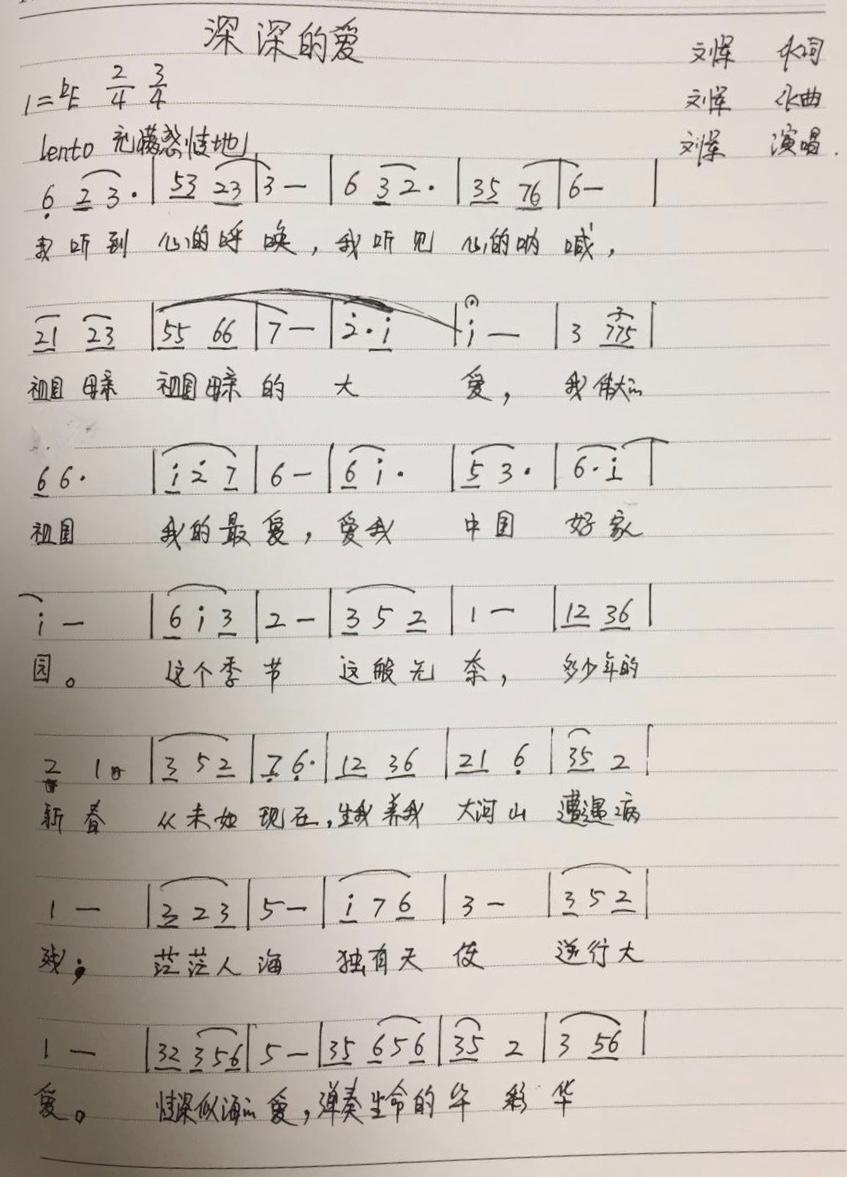 深深的爱
刘军 作词
1=bE 2/4 3/4
刘军 作曲
lento 充满愁情地
刘军 演唱.
6 2 3· | 53 23 | 3 — | 6 3 2· | 35 76 | 6 — |
我听到 心的呼唤,我听见 心的呐喊,
21 23 | 55 66 | 7 — | 2·i | i — | 3 775 |
祖国母亲 祖国母亲的大 爱, 我伟大的
6 6· | i 2 7 | 6 — | 6 i· | 5 3· | 6·i |
祖国 我的最爱,爱我 中国 好家
i — | 6 i 3 | 2 — | 3 5 2 | 1 — | 12 36 |
园。 这个季节 这般无奈, 多少年的
2 1 | 3 5 2 | 7 6· | 12 36 | 21 6 | 35 2 |
新春 从未如现在,生我养我 大河山 遭遇病
1 — | 3 2 3 | 5 — | i 7 6 | 3 — | 3 5 2 |
残; 茫茫人海 独有天使 逆行大
1 — | 32 356 | 5 — | 35 656 | 35 2 | 3 56 |
爱。 情深似海的爱,弹奏生命的华彩华